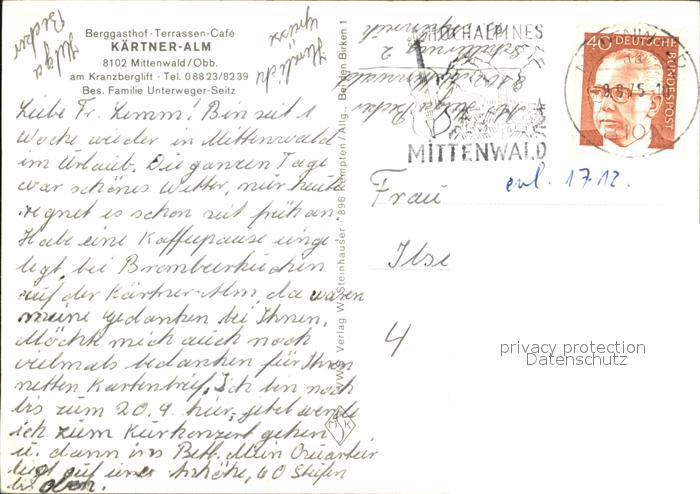 Berggasthof-Terrassen-Café
KÄRTNER-ALM
8102 Mittenwald/Obb.
am Kranzberglift - Tel. 08823/8239
Bes. Familie Unterweger-Seitz
Herzlich
grüsst
Helga
Becker
Liebe Fr. Lemm! Bin seit 1
Woche wieder in Mittenwald
im Urlaub. Die ganzen Tage
war schönes Wetter, nur heute
regnet es schon seit früh an.
Habe eine Kaffeepause einge-
legt, bei Brombeerkuchen
auf der Kärtner-Alm, da waren
meine Gedanken bei Ihnen.
Möchte mich auch noch
vielmals bedanken für Ihren
netten Kartenbrief. Ich bin noch
bis zum 20.9. hier, jetzt werde
ich zum Kurkonzert gehen
u. dann ins Bett. Mein Quartier
liegt auf einer Anhöhe, 60 Stufen
bis oben.
Verlag W. Steinhauser · 896 Kempten/Allg., Bei den Birken 1
HOCHALPINES
MITTENWALD
40 DEUTSCHE
BUNDESPOST
8102
erl. 17.12.
Frau
Ilse
4
privacy protection
Datenschutz